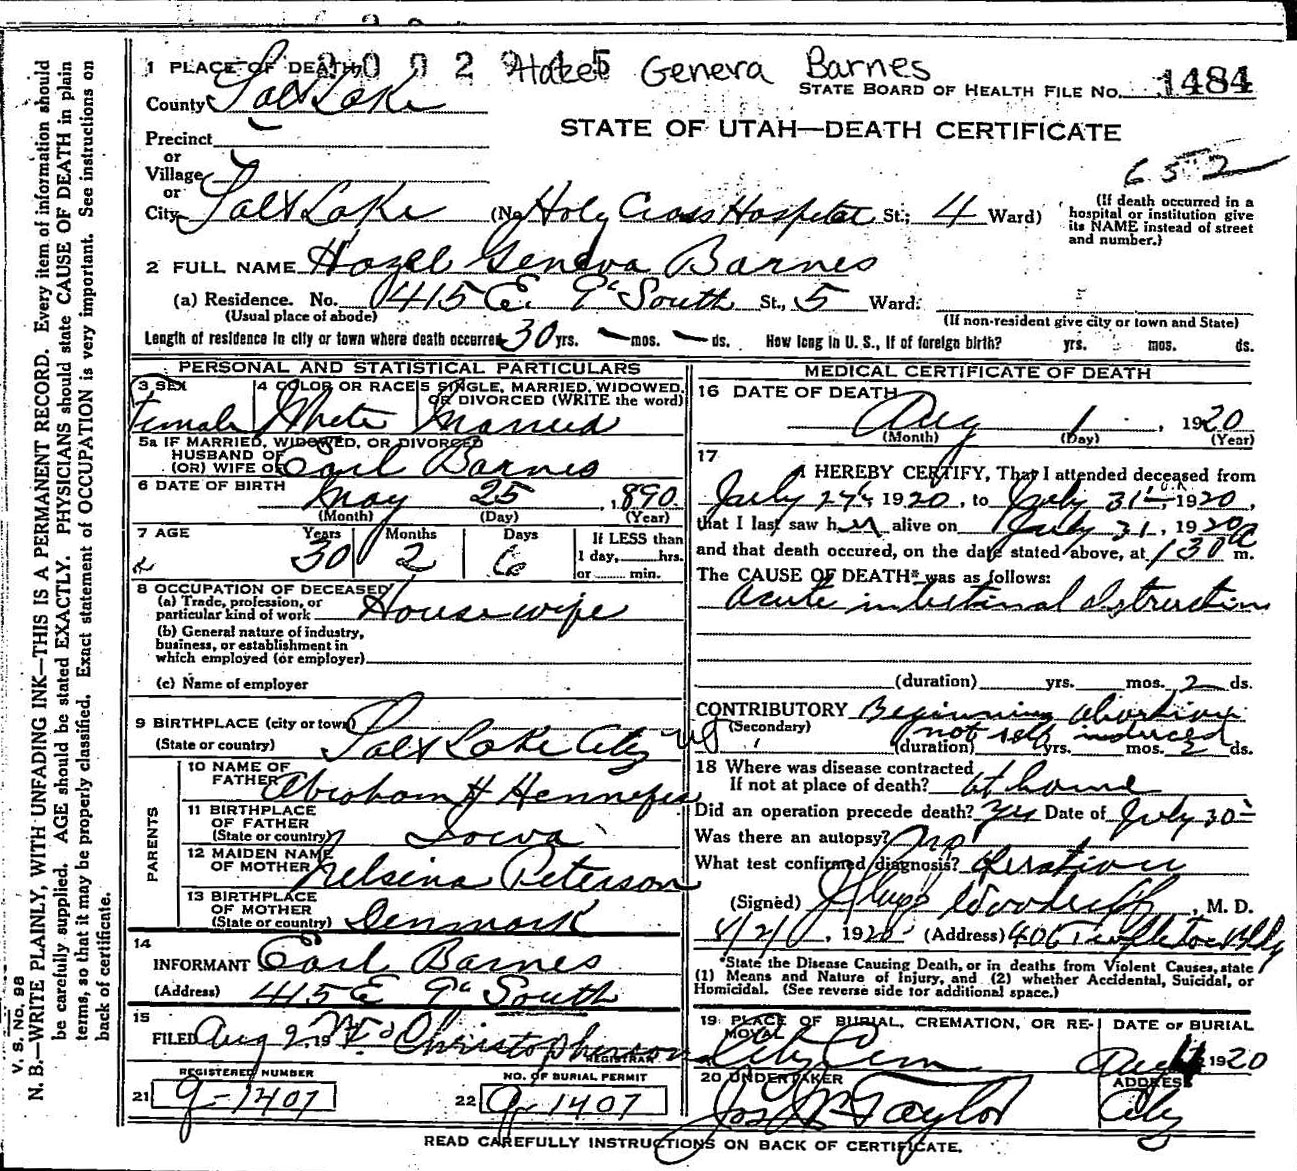 Hazel Geneva Barnes
1 PLACE OF DEATH
STATE BOARD OF HEALTH FILE No. 1484
County Salt Lake
STATE OF UTAH—DEATH CERTIFICATE
Precinct
or
Village
652
or
City Salt Lake (No. Holy Cross Hospital St.; 4 Ward)
(If death occurred in a hospital or institution give its NAME instead of street and number.)
2 FULL NAME Hazel Geneva Barnes
(a) Residence. No. 415 E. 9th South St., 5 Ward.
(Usual place of abode) (If non-resident give city or town and State)
Length of residence in city or town where death occurred 30 yrs. — mos. — ds. How long in U. S., if of foreign birth? yrs. mos. ds.
PERSONAL AND STATISTICAL PARTICULARS
3 SEX 4 COLOR OR RACE 5 SINGLE, MARRIED, WIDOWED,
OR DIVORCED (WRITE the word)
Female White Married
5a IF MARRIED, WIDOWED, OR DIVORCED
HUSBAND OF
(OR) WIFE OF Earl Barnes
6 DATE OF BIRTH May 25, 1890
(Month) (Day) (Year)
7 AGE Years Months Days If LESS than
30 2 6 1 day, hrs.
or min.
8 OCCUPATION OF DECEASED
(a) Trade, profession, or
particular kind of work Housewife
(b) General nature of industry,
business, or establishment in
which employed (or employer)
(c) Name of employer
9 BIRTHPLACE (city or town)
(State or country) Salt Lake City Ut
PARENTS
10 NAME OF
FATHER Abraham H Hennefer
11 BIRTHPLACE
OF FATHER
(State or country) Iowa
12 MAIDEN NAME
OF MOTHER Nelsina Peterson
13 BIRTHPLACE
OF MOTHER
(State or country) Denmark
14
INFORMANT Earl Barnes
(Address) 415 E 9th South
15
FILED Aug 2 19 Christopherson
REGISTRAR
REGISTERED NUMBER NO. OF BURIAL PERMIT
21 g-1407 22 g-1407
MEDICAL CERTIFICATE OF DEATH
16 DATE OF DEATH
Aug 1, 1920
(Month) (Day) (Year)
17
I HEREBY CERTIFY, That I attended deceased from
July 27th, 1920, to July 31st, 1920,
that I last saw her alive on July 31, 1920
and that death occured, on the date stated above, at 1 30 a m.
The CAUSE OF DEATH* was as follows:
Acute intestinal obstruction
(duration) yrs. mos. 2 ds.
CONTRIBUTORY Beginning abortion
(Secondary) not self induced
(duration) yrs. mos. 2 ds.
18 Where was disease contracted
If not at place of death? at home
Did an operation precede death? Yes Date of July 30
Was there an autopsy? No
What test confirmed diagnosis? Operation
(Signed) Woodruff, M. D.
8/2, 1920 (Address) 406 Templeton Bldg
*State the Disease Causing Death, or in deaths from Violent Causes, state
(1) Means and Nature of Injury, and (2) whether Accidental, Suicidal, or
Homicidal. (See reverse side for additional space.)
19 PLACE OF BURIAL, CREMATION, OR RE- DATE OF BURIAL
MOVAL City Cem Aug 4 1920
20 UNDERTAKER ADDRESS
Jos Wm Taylor City
READ CAREFULLY INSTRUCTIONS ON BACK OF CERTIFICATE.
V. S. No. 98
N. B.—WRITE PLAINLY, WITH UNFADING INK—THIS IS A PERMANENT RECORD. Every item of information should
be carefully supplied. AGE should be stated EXACTLY. PHYSICIANS should state CAUSE OF DEATH in plain
terms, so that it may be properly classified. Exact statement of OCCUPATION is very important. See instructions on
back of certificate.